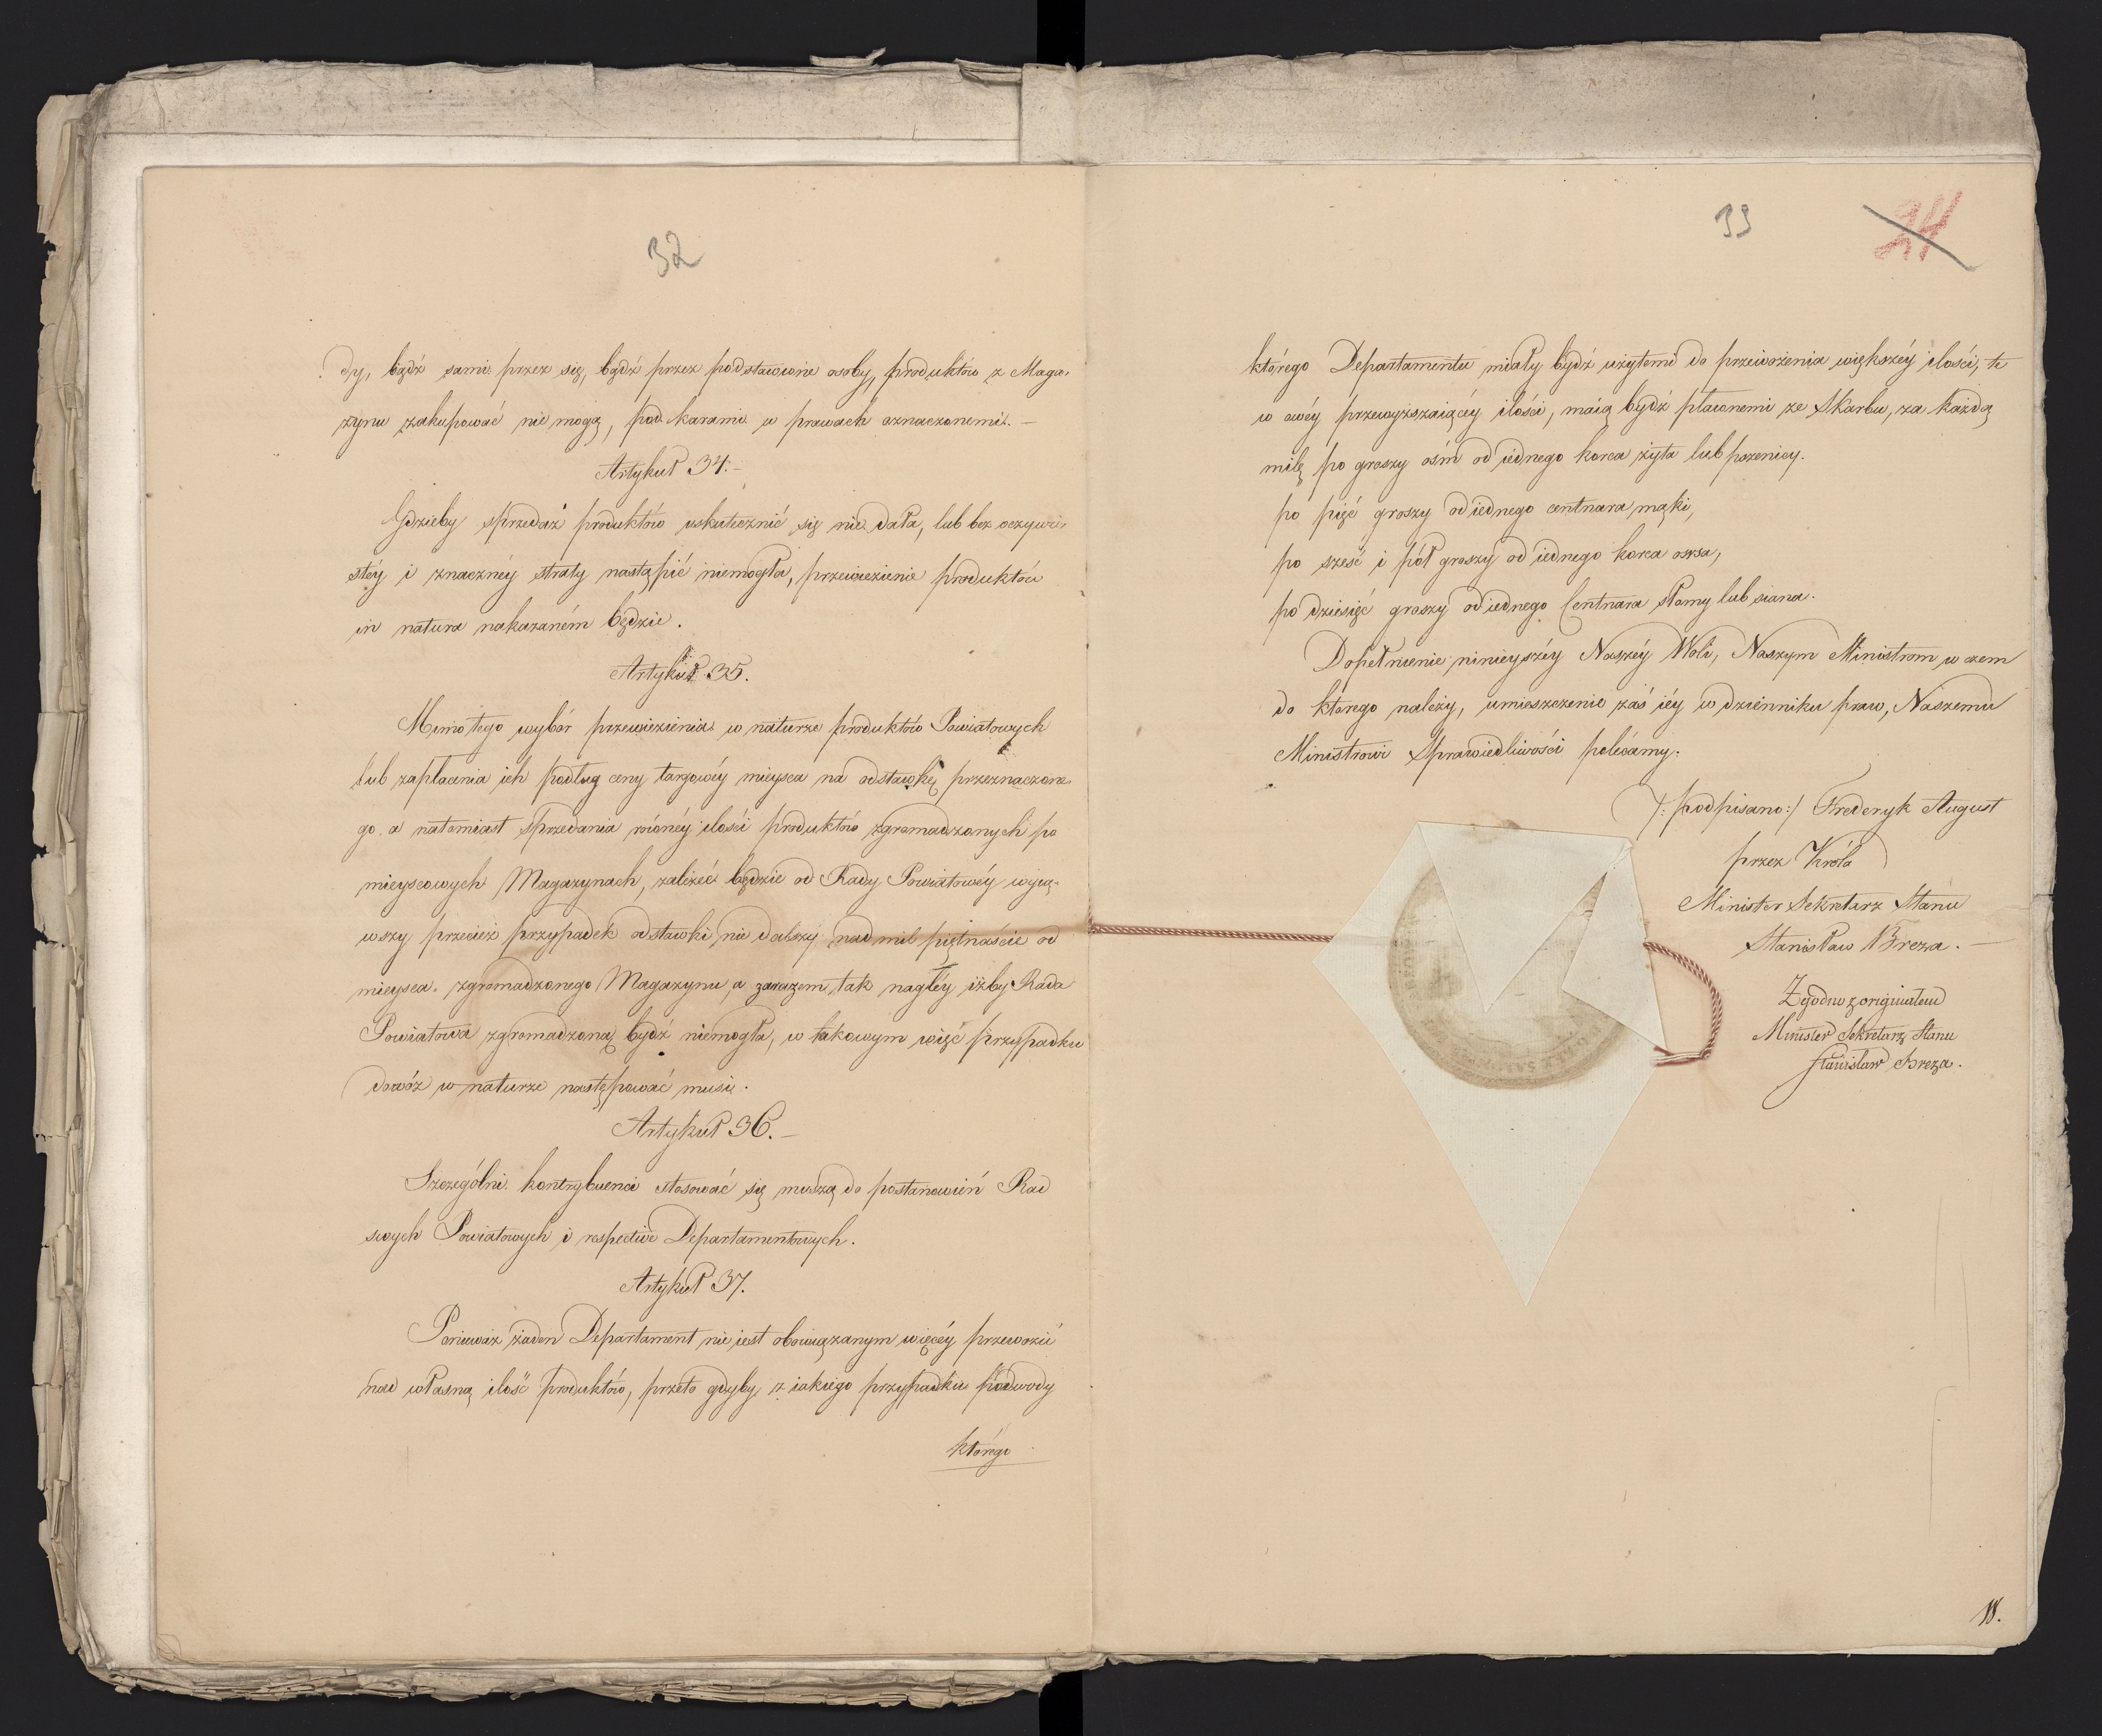 32
dy, bądź sami przez się, bądź przez podstawione osoby, produktów z Maga-
zynu zakupować nie mogą, pod karami w prawach oznaczonemi. —
Artykuł 34. —
Gdzieby sprzedaż produktów uskutecznić się nie dała, lub bez oczywi-
stéy i znacznéy straty nastąpić niemogła, przewiezienie produktów
in natura nakazaném będzie.
Artykuł 35.
Mimo tego wybór przewiezienia w naturze produktów Powiatowych
lub zapłacenia ich podług ceny targowéy mieysca na odstawkę przeznaczone-
go, a natomiast sprzedania równéy ilości produktów zgromadzonych po
mieyscowych Magazynach, zależeć będzie od Rady Powiatowéy wyią-
wszy przecież przypadek odstawki nie dalszéy nad mil piętnaście od
mieysca zgromadzonego Magazynu, a zarazem tak nagłéy iżby Rada
Powiatowa zgromadzoną bydź niemogła, w takowym więc przypadku
dowóz w naturze następować musi.
Artykuł 36. —
Szczególni kontrybuenci stosować się muszą do postanowień Rad
swych Powiatowych i respective Departamentowych.
Artykuł 37.
Ponieważ żaden Departament nie iest obowiązanym więcéy przewozić
nad własną ilość produktów, przeto gdyby z iakiego przypadku podwody
którego
33
24
którego Departamentu miały bydź użytemi do przewożenia większéy ilości, te
w owéy przewyższaiącéy ilości, maią bydź płaconemi ze Skarbu, za każdą
milę po groszy ośm od iednego korca żyta lub pszenicy.
po pięć groszy od iednego centnara mąki,
po sześć i pół groszy od iednego korca owsa,
po dziesięć groszy od iednego Centnara słomy lub siana.
Dopełnienie ninieyszéy Naszéy Woli, Naszym Ministrom w czem
do ktorego należy, umieszczenie zaś iéy w dzienniku praw, Naszemu
Ministrowi Sprawiedliwości polecamy.
/: podpisano :/ Frederyk August
przez Króla
Minister Sekretarz Stanu
Stanisław Breza. —
Zgodno z originałem
Minister Sekretarz Stanu
Stanisław Breza.
18.